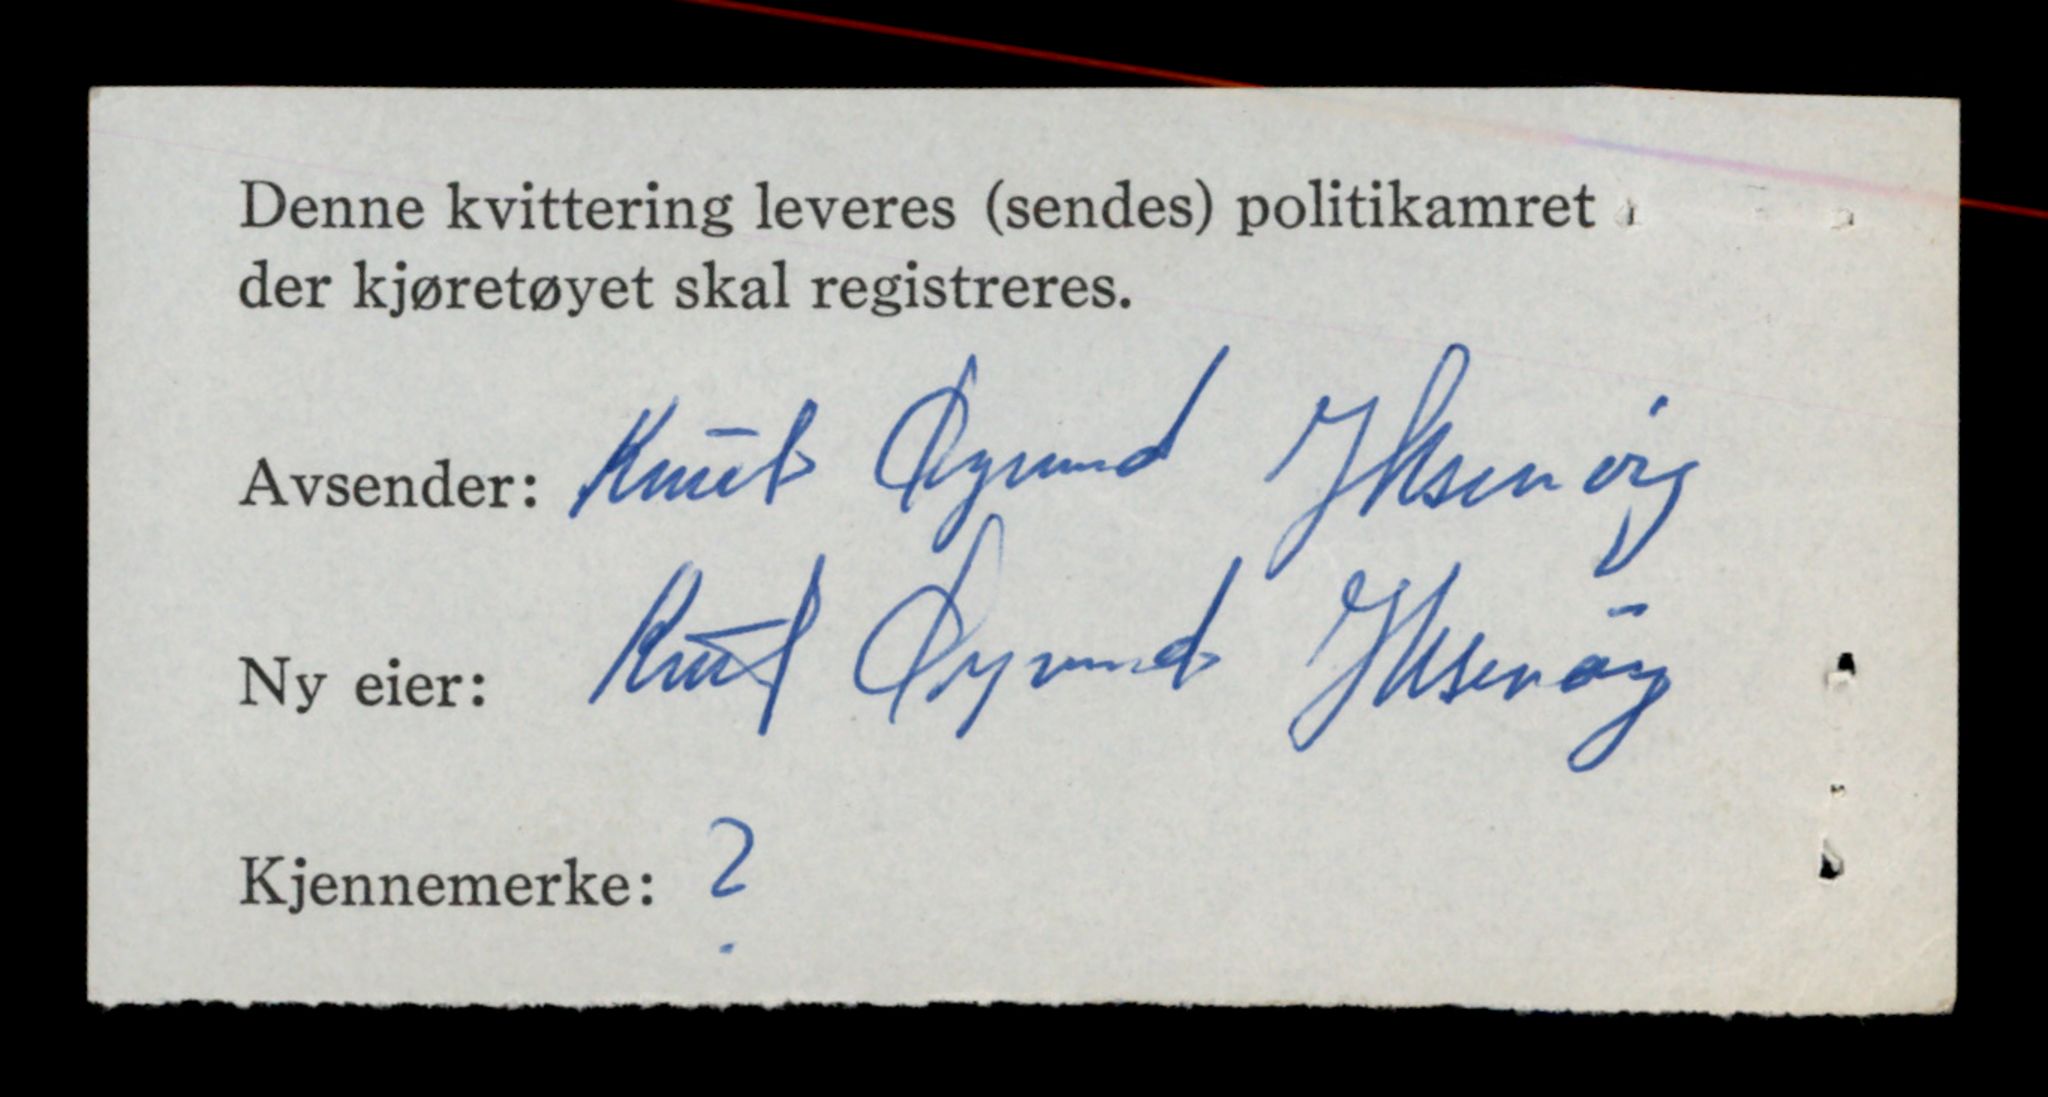 Denne kvittering leveres (sendes) politikamret i
der kjøretøyet skal registreres.
Avsender: Knut Øyvind
Ny eier: Knut Øyvind
Kjennemerke: ?